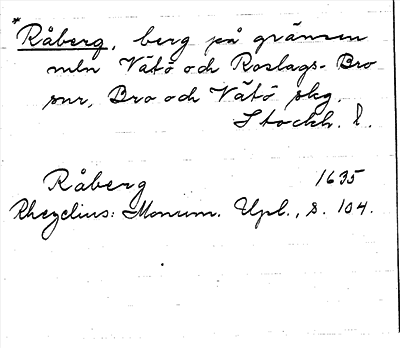 *Råberg, berg på gränsen
mln Vätö och Roslags-Bro
snr, Bro och Vätö skg.
Stockh. l.
Råberg 1635
Rhezelius: Monum. Upl., s. 104.